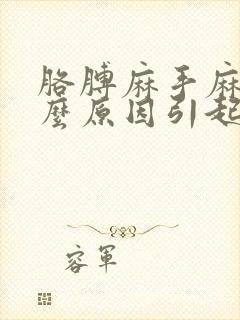 胳膊麻手麻
麼原因引起
容軍